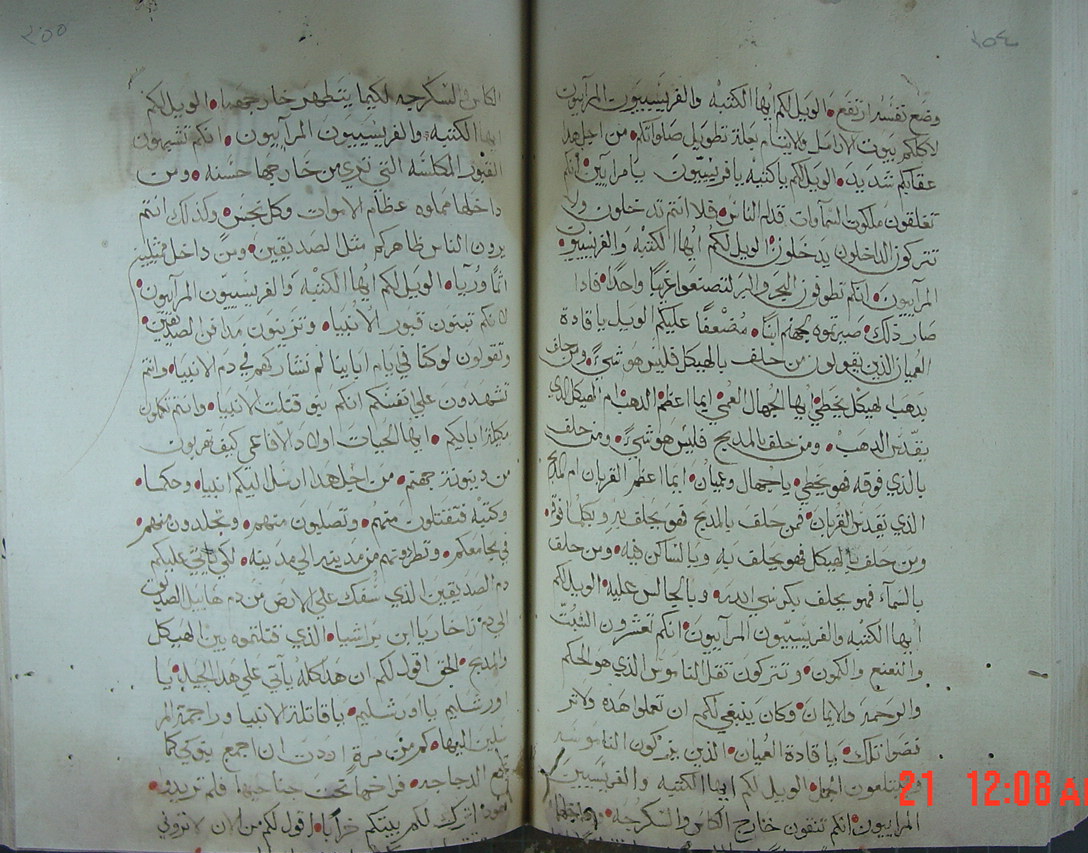 ٢٥٤
وضع نفسه ارتفع • الويل لكم ايها الكتبه والفريسييون المرآييون
لاكلكم بيوت الارامل والايتام بعلة تطويل صلواتكم • من اجل هذا
عقابكم شديد • الويل لكم ياكتبه يافريسييون يامرآيين • انكم
تغلقون ملكوت السماوات قدام الناس • فلا انتم تدخلون ولا
تتركون الداخلين يدخلون • الويل لكم ايها الكتبه والفريسييون
المرآييون • لانكم تطوفون البحر والبر لتصنعوا غريبا واحدا • فاذا
صار ذلك • صيرتموه لجهنم ابنا • مضعفا عليكم الويل يا قادة
العميان الذين يقولون من حلف بالهيكل فليس هو شي • ومن حلف
بدهب الهيكل يخطي • ايها الجهال العمي ايما اعظم الدهب ام الهيكل الدي
يقدس الدهب • ومن حلف بالمدبح فليس هو شي • ومن حلف
بالذي فوقه فهو يخطي • ياجهال وعميان • ايما اعظم القربان ام المدبح
الذي يقدس القربان • فمن حلف بالمدبح فهو يحلف به وبكلما فوقه •
ومن حلف بالهيكل فهو يحلف به وبالساكن فيه • ومن حلف
بالسمآء فهو يحلف بكرسي الله وبالجالس عليه • الويل لكم
ايها الكتبه والفريسييون المرآييون • انكم تعشرون الشبت
والنعنع والكمون • وتتركون ثقل الناموس الذي هو الحكم
والرحمة والايمان • وكان ينبغي لكم ان تعملوا هذه ولا تر
فضوا تلك • يا قادة العميان • الذين
وتبتلعون الجمل • الويل لكم ايها الكتبه والفريسيين
المراييون • انكم تنقون خارج الكاس والسكرجه • وداخلها
٢٥٥
الكاس والسكرجه لكيما يتطهر خارجهما • الويل لكم
ايها الكتبه والفريسييون المرآييون • انكم تشبهون
القبور المكلسه التي ترى من خارجها حسنه • ومن
داخلها مملوه عظام الاموات وكل نجس • وكذلك انتم
يرون الناس ظاهركم مثل الصديقين • ومن داخل ممتليين
اثما وريا • الويل لكم ايها الكتبه والفريسييون المرآييون •
لانكم تبنون قبور الانبيا • وتزينون مدافن الصديقين •
وتقولون لوكنا في ايام اباينا لم نشاركهم في دم الانبيا • وانتم
تشهدون علي انفسكم انكم بنو قتلت الانبيا • وانتم تكملون
مكيلة ابايكم • ايها الحيات اولاد الافاعي كيف تهربون
من دينونة جهنم • من اجل هدا ارسل اليكم انبيا • وحكما •
وكتبه فتقتلون منهم • وتصلبون منهم • وتجلدون منهم •
في مجامعكم • وتطردونهم من مدينه الي مدينه • لكي ياتي عليكم
دم الصديقين الذي سفك علي الارض من دم هابيل الصديق
الي دم زخاريا ابن براشيا • الذي قتلتموه بين الهيكل
والمدبح • الحق اقول لكم ان هذا كله يأتي علي هدا الجيل • يا
اورشليم يا اورشليم • ياقاتلة الانبيا وراجمة المر
سلين اليها • كم من مرة اردت ان اجمع بنوكي كما
تجمع الدجاجه • فراخها تحت جناحيها فلم تريدو •
هودا اترك لكم بيتكم خرابا • اقول لكم من الان لا تروني